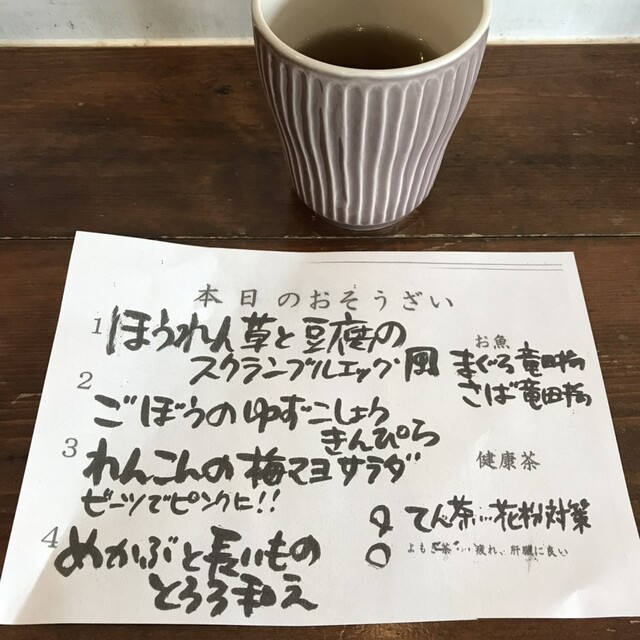 本日のおそうざい
1 ほうれん草と豆腐の
スクランブルエッグ風
2 ごぼうのゆずこしょう
きんぴら
3 れんこんの梅マヨサラダ
ビーツでピンクに!!
4 めかぶと長いもの
とろろ和え
お魚
まぐろ竜田揚
さば竜田揚
健康茶
てん茶…花粉対策
よもぎ茶…疲れ、肝臓に良い